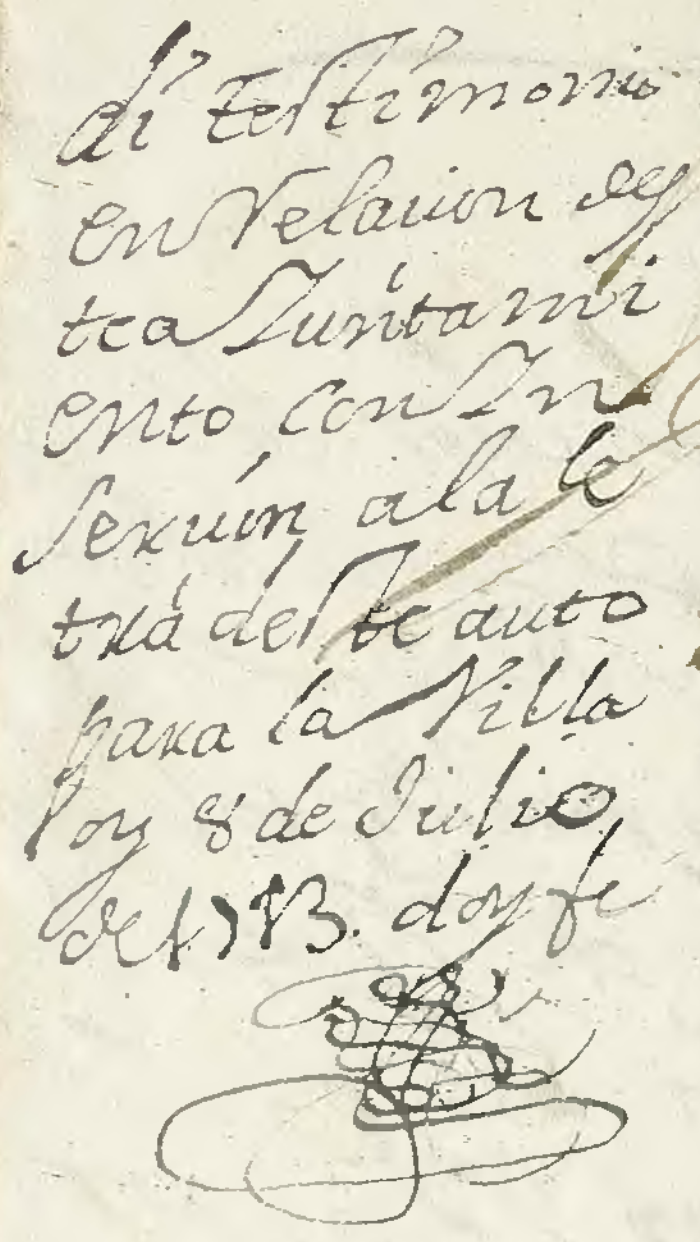 di testimonio
en Relacion des
te aJuntami
ento con In
serción a la le
tra deste auto
para la Villa
oy 8 de Julio
de 1713. doy fe